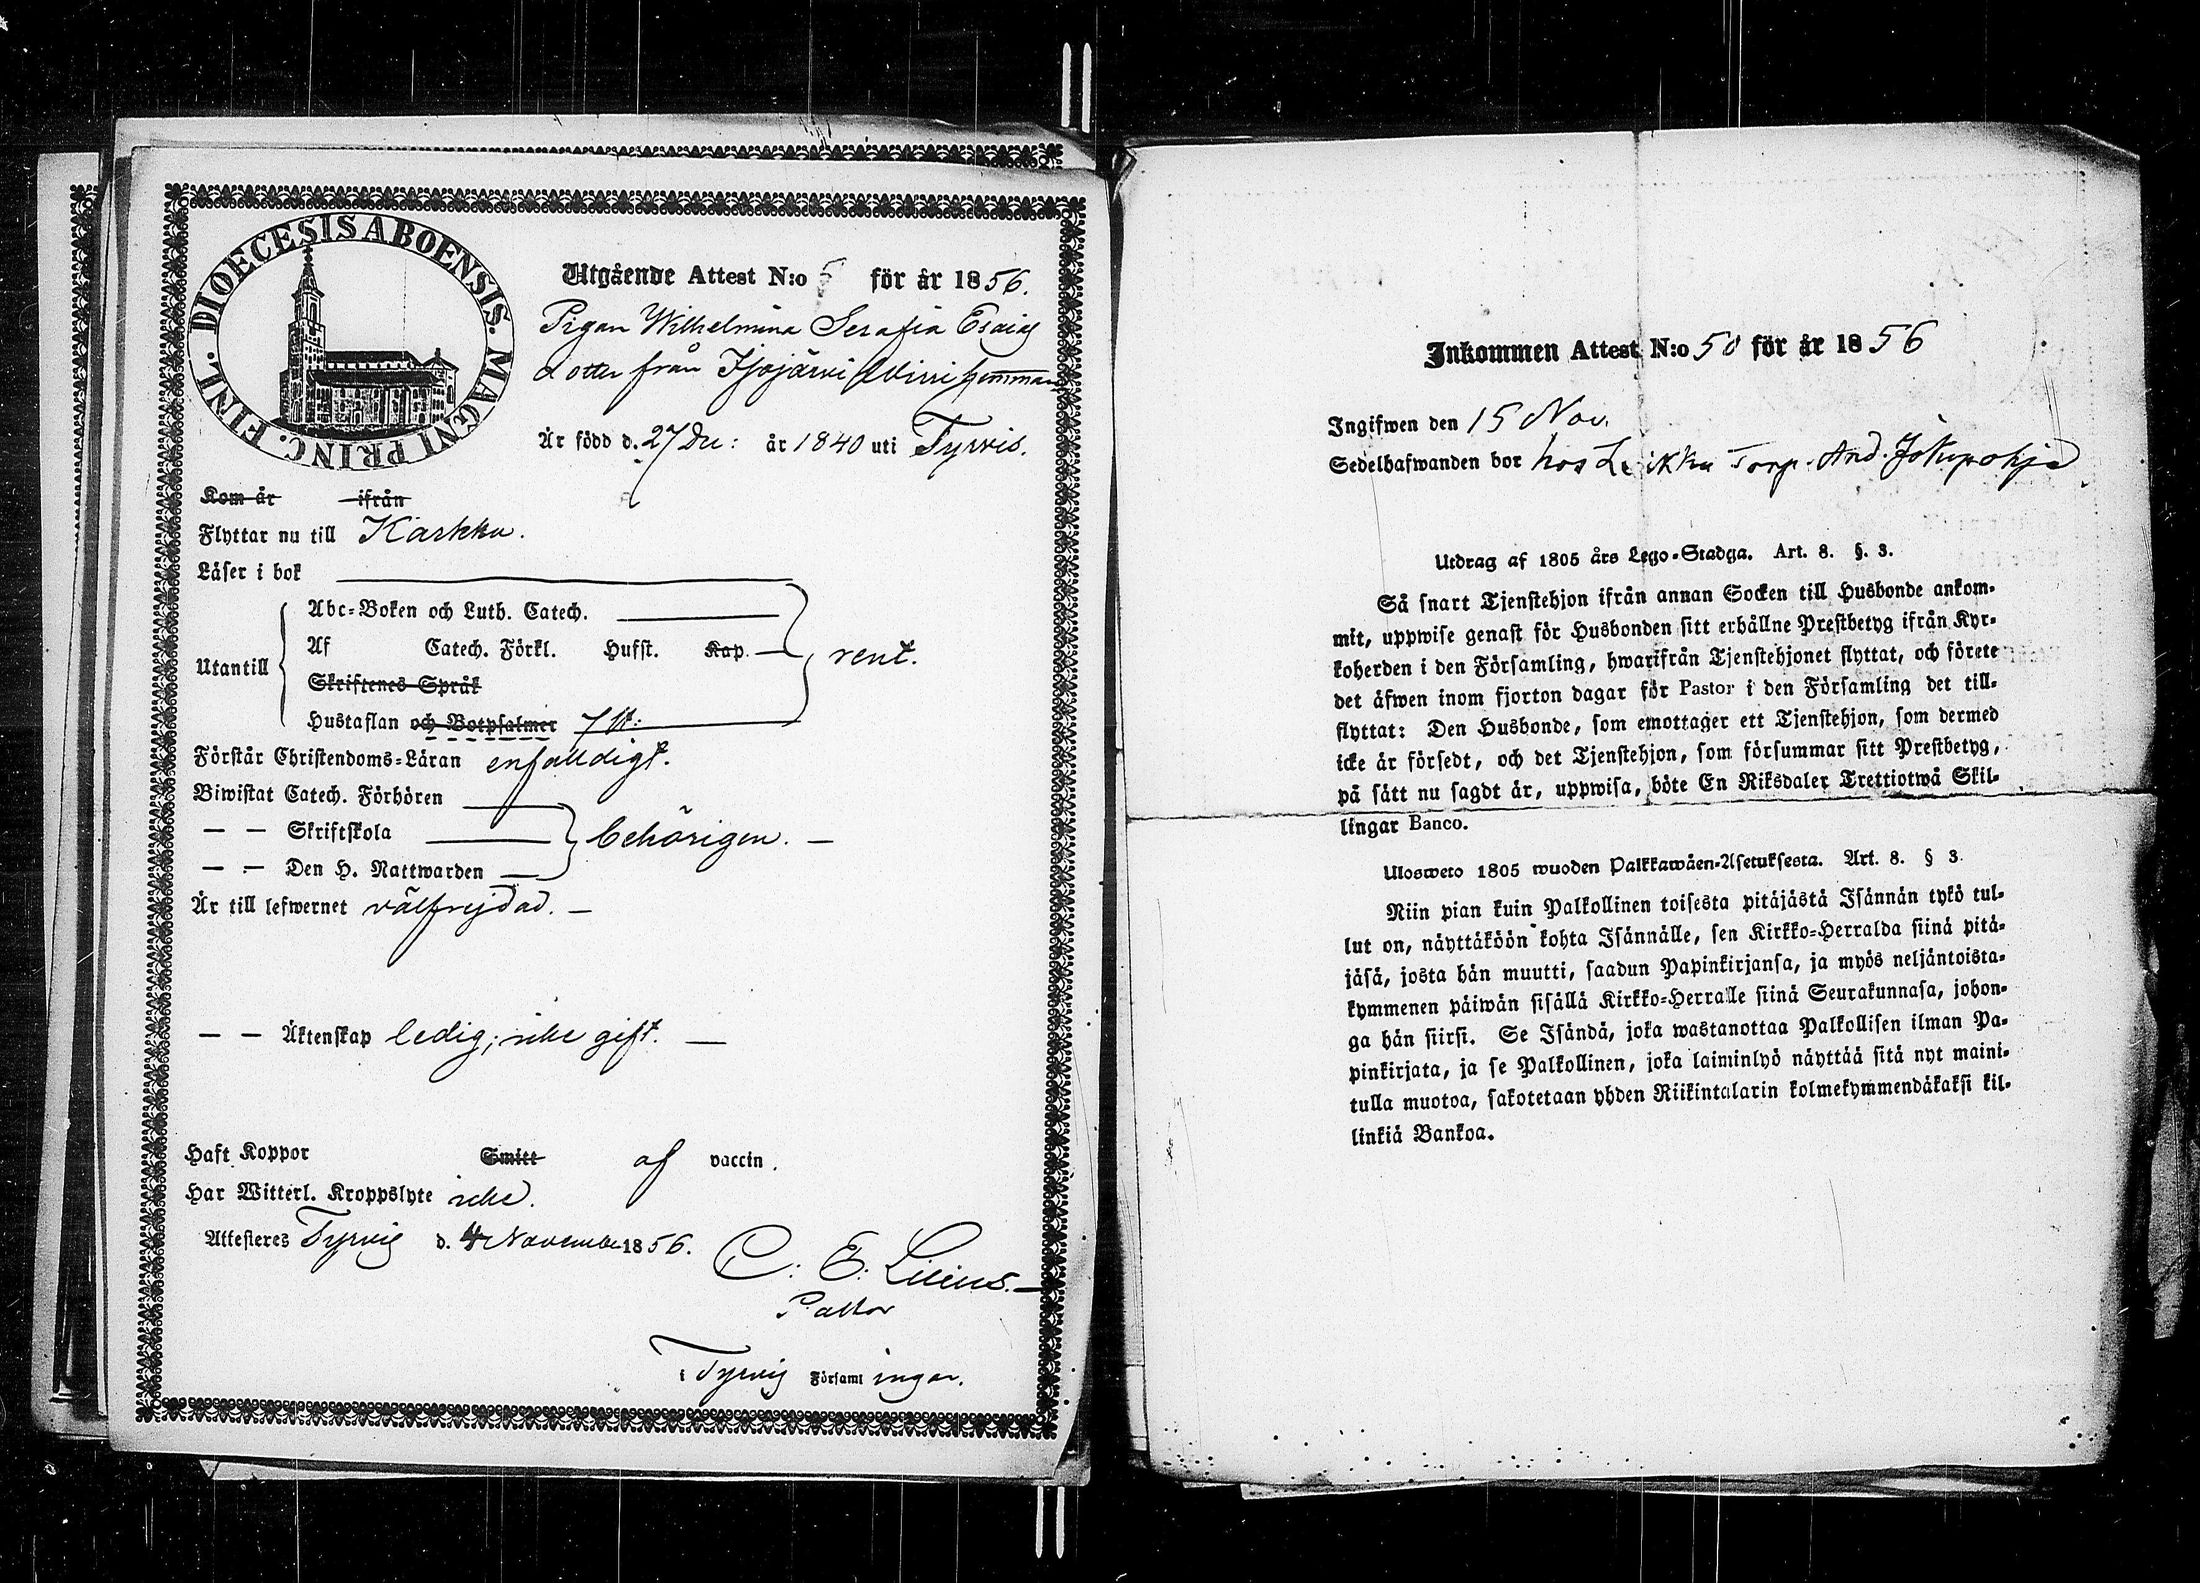 DIOECESIS ABOENSIS. MAGNI PRINC. FINL.
Utgående Attest N:o 5 för år 1856.
Pigan Wilhelmina Serafia Esaias
dotter från Jfojärvi hemman
Är född d. 27 Dec: år 1840 uti Tyrvis.
Kom år ifrån
Flyttar nu till Karkku.
Läser i bok
Utantill
Abc-Boken och Luth. Catech.
Af Catech. Förkl. Hufst. Kap.
rent.
Skriftenes Språk
Hustaflan och Botpsalmer 7 st:
Förstår Christendoms-Läran enfaldigt.
Biwistat Catech. Förhören
— — Skriftskola behörigen. —
— — Den H. Nattwarden
Är till lefwernet välfrejdad. —
— — Äktenskap ledig; icke gift. —
Haft Koppor Smitt af vaccin.
Har Witterl. Kroppslyte icke.
Attesteres Tyrvis d. 4 November 1856.
C: E: Lilius.
Pastor
i Tyrvis Församlingar.
Inkommen Attest N:o 50 för år 1856
Ingifwen den 15 Nov.
Sedelhafwanden bor hos Torp. And. Jokipohja
Utdrag af 1805 års Lego-Stadga. Art. 8. §. 3.
Så snart Tjenstehjon ifrån annan Socken till Husbonde ankom-
mit, uppwise genast för Husbonden sitt erhållne Prestbetyg ifrån Kyr-
koherden i den Församling, hwarifrån Tjenstehjonet flyttat, och förete
det äfwen inom fjorton dagar för Pastor i den Församling det till-
flyttat: Den Husbonde, som emottager ett Tjenstehjon, som dermed
icke är försedt, och det Tjenstehjon, som försummar sitt Prestbetyg,
på sätt nu sagdt är, uppwisa, böte En Riksdaler Trettiotwå Skil-
lingar Banco.
Ulosweto 1805 wuoden Palkkawäen-Asetuksesta. Art. 8. § 3.
Niin pian kuin Palkollinen toisesta pitäjästä Isännän tykö tul-
lut on, näyttäköön kohta Isännälle, sen Kirkko-Herralda siinä pitä-
jäsä, josta hän muutti, saadun Papinkirjansa, ja myös neljäntoista-
kymmenen päiwän sisällä Kirkko-Herralle siinä Seurakunnasa, johon-
ga hän siirsi. Se Isändä, joka wastanottaa Palkollisen ilman Pa-
pinkirjata, ja se Palkollinen, joka laiminlyö näyttää sitä nyt maini-
tulla muotoa, sakotetaan yhden Riikintalarin kolmekymmendäkaksi kil-
linkiä Bankoa.